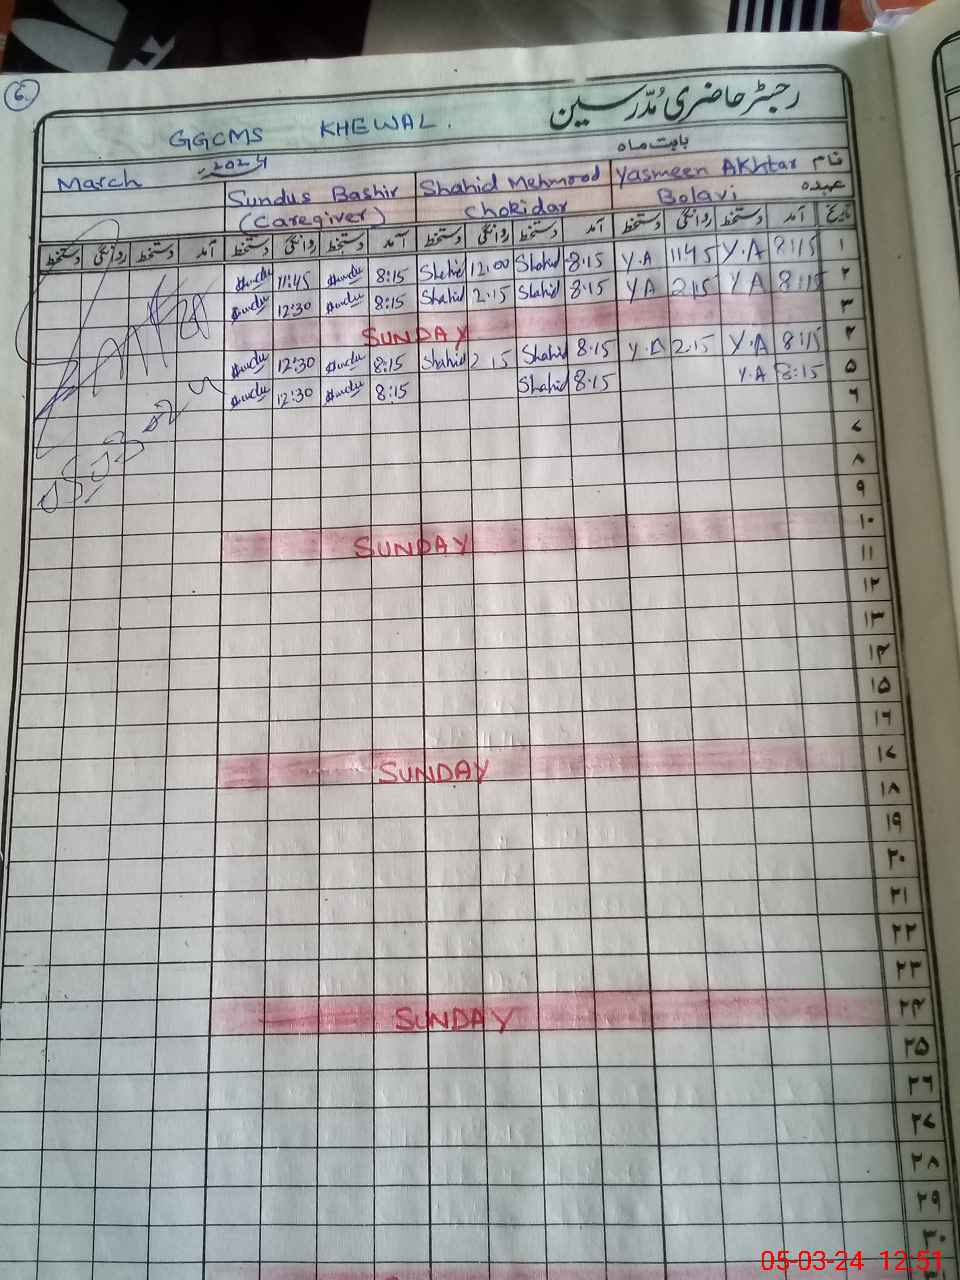 6
رجسٹر حاضری مدرسین
GGCMS KHEWAL.
بابت ماہ
March 2024 نام Yasmeen Akhtar Shahid Mehmood Sundus Bashir
عہدہ Bolavi Chokidar (Caregiver)
تاریخ آمد دستخط روانگی دستخط آمد دستخط روانگی دستخط آمد دستخط روانگی دستخط آمد دستخط روانگی دستخط
۱ 8:15 Y.A 11:45 Y.A 8:15 Shahid 12:00 Shahid 8:15 11:45
۲ 8:15 Y A 2:15 Y A 8:15 Shahid 2.15 Shahid 8:15 12:30
۳ SUNDAY
۴ 8:15 Y.A 2.15 Y.A 8:15 Shahid 2.15 Shahid 8:15 12:30
۵ 8:15 Y.A 8:15 Shahid 8:15 12:30
۶
۷
۸
۹
۱۰ SUNDAY
۱۱
۱۲
۱۳
۱۴
۱۵
۱۶
۱۷ SUNDAY
۱۸
۱۹
۲۰
۲۱
۲۲
۲۳
۲۴ SUNDAY
۲۵
۲۶
۲۷
۲۸
۲۹
۳۰
05-03-24 12:51